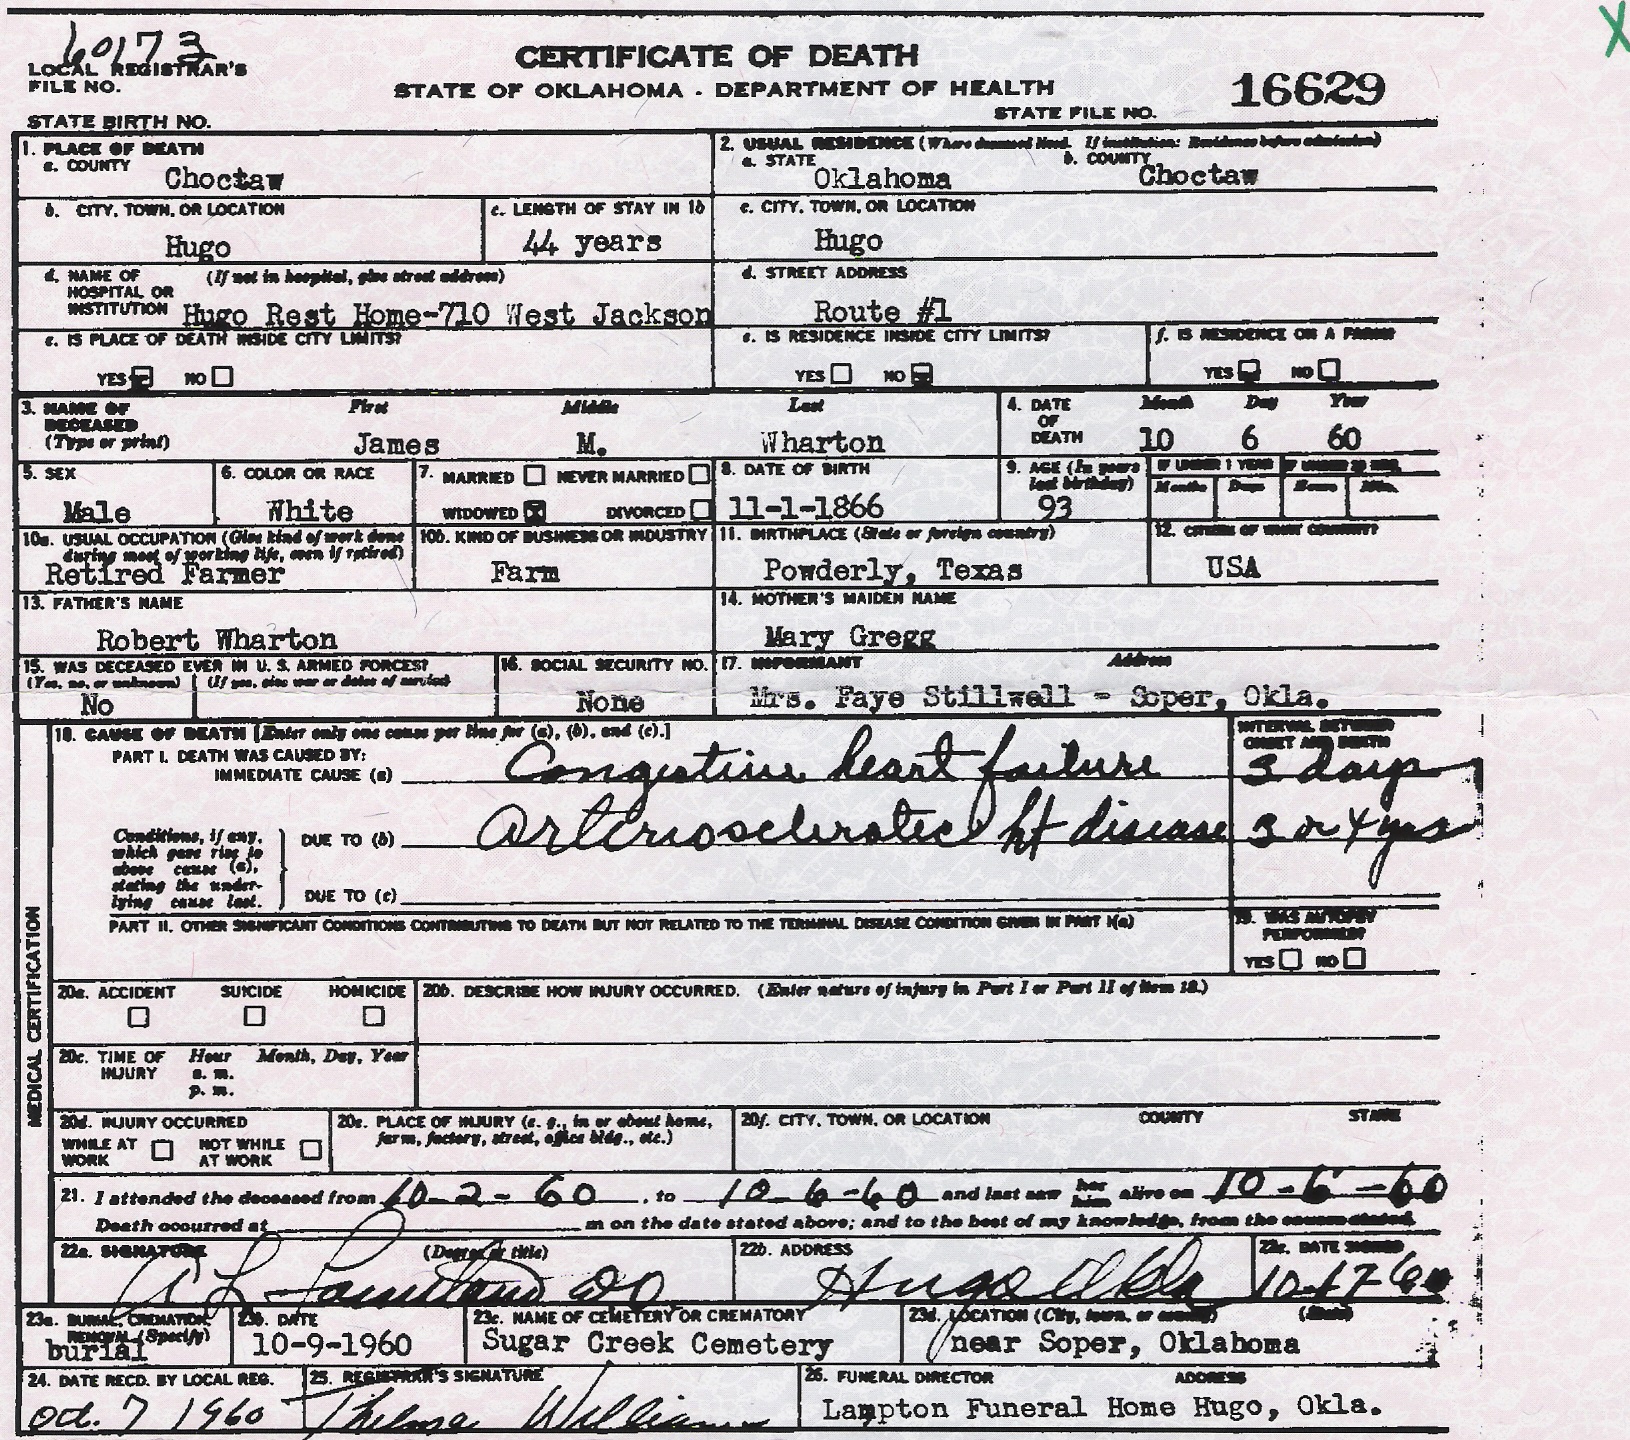 60173
CERTIFICATE OF DEATH
LOCAL REGISTRAR'S
FILE NO.
STATE OF OKLAHOMA - DEPARTMENT OF HEALTH
16629
STATE FILE NO.
STATE BIRTH NO.
X
1. PLACE OF DEATH
a. COUNTY Choctaw
2. USUAL RESIDENCE (Where deceased lived. If institution: Residence before admission)
a. STATE Oklahoma b. COUNTY Choctaw
b. CITY, TOWN, OR LOCATION
Hugo
c. LENGTH OF STAY IN 1b
44 years
c. CITY, TOWN, OR LOCATION
Hugo
d. NAME OF (If not in hospital, give street address)
HOSPITAL OR
INSTITUTION Hugo Rest Home-710 West Jackson
d. STREET ADDRESS
Route #1
e. IS PLACE OF DEATH INSIDE CITY LIMITS?
YES NO
e. IS RESIDENCE INSIDE CITY LIMITS?
YES NO
f. IS RESIDENCE ON A FARM?
YES NO
3. NAME OF First Middle Last
DECEASED
(Type or print) James M. Wharton
4. DATE Month Day Year
OF
DEATH 10 6 60
5. SEX
Male
6. COLOR OR RACE
White
7. MARRIED NEVER MARRIED
WIDOWED X DIVORCED
8. DATE OF BIRTH
11-1-1866
9. AGE (In years
last birthday)
93
IF UNDER 1 YEAR
Months Days
IF UNDER 24 HRS.
Hours Min.
10a. USUAL OCCUPATION (Give kind of work done
during most of working life, even if retired)
Retired Farmer
10b. KIND OF BUSINESS OR INDUSTRY
Farm
11. BIRTHPLACE (State or foreign country)
Powderly, Texas
12. CITIZEN OF WHAT COUNTRY?
USA
13. FATHER'S NAME
Robert Wharton
14. MOTHER'S MAIDEN NAME
Mary Gregg
15. WAS DECEASED EVER IN U. S. ARMED FORCES?
(Yes, no, or unknown) (If yes, give war or dates of service)
No
16. SOCIAL SECURITY NO.
None
17. INFORMANT Address
Mrs. Faye Stillwell - Soper, Okla.
MEDICAL CERTIFICATION
18. CAUSE OF DEATH [Enter only one cause per line for (a), (b), and (c).]
INTERVAL BETWEEN
ONSET AND DEATH
PART I. DEATH WAS CAUSED BY:
IMMEDIATE CAUSE (a) Congestive heart failure 3 days
Conditions, if any,
which gave rise to
above cause (a),
stating the under-
lying cause last.
DUE TO (b) Arteriosclerotic ht disease 3 or 4 yrs
DUE TO (c)
PART II. OTHER SIGNIFICANT CONDITIONS CONTRIBUTING TO DEATH BUT NOT RELATED TO THE TERMINAL DISEASE CONDITION GIVEN IN PART I(a)
19. WAS AUTOPSY
PERFORMED?
YES NO
20a. ACCIDENT SUICIDE HOMICIDE
20b. DESCRIBE HOW INJURY OCCURRED. (Enter nature of injury in Part I or Part II of item 18.)
20c. TIME OF Hour Month, Day, Year
INJURY a. m.
p. m.
20d. INJURY OCCURRED
WHILE AT WORK NOT WHILE AT WORK
20e. PLACE OF INJURY (e. g., in or about home,
farm, factory, street, office bldg., etc.)
20f. CITY, TOWN, OR LOCATION COUNTY STATE
21. I attended the deceased from 10-2-60, to 10-6-60 and last saw her him alive on 10-6-60
Death occurred at m on the date stated above; and to the best of my knowledge, from the causes stated.
22a. SIGNATURE (Degree or title)
DO
22b. ADDRESS
Hugo Okla
22c. DATE SIGNED
10-17-60
23a. BURIAL, CREMATION,
REMOVAL (Specify)
burial
23b. DATE
10-9-1960
23c. NAME OF CEMETERY OR CREMATORY
Sugar Creek Cemetery
23d. LOCATION (City, town, or county) (State)
near Soper, Oklahoma
24. DATE RECD. BY LOCAL REG.
Oct. 7 1960
25. REGISTRAR'S SIGNATURE
Thelma Williams
26. FUNERAL DIRECTOR ADDRESS
Lampton Funeral Home Hugo, Okla.